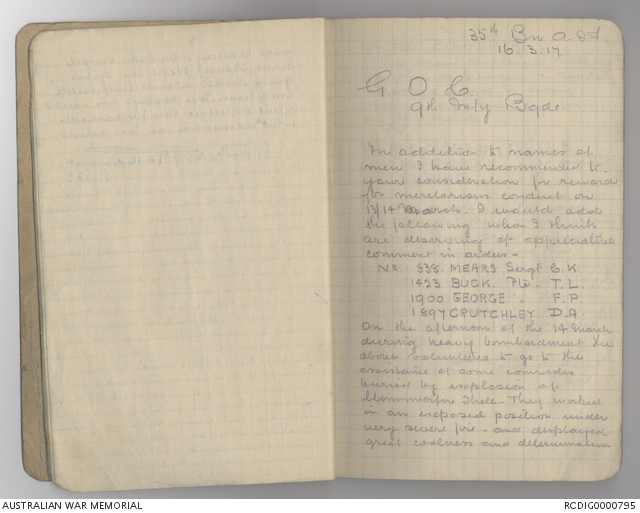 35th Bn A.I.F.
16.3.17
G.O.C.
9th Infy Bgde.
In addition to names of
men I have recommended to
your consideration for reward
for meritorious conduct on
13/14 March. I would add
the following whom I think
are deserving of appreciative
comment in orders -
No 838. MEARS Sergt C.K.
1423 BUCK. Pte. T.L.
1900 GEORGE " F.P
1897 CRUTCHLEY D.A
On the afternoon of the 14 March
during heavy bombardment the
above volunteered to go to the
assistance of some comrades
buried by explosion of
Minnenwerfer Shell. They worked
in an exposed position under
very severe fire - and displayed
great coolness and determination
AUSTRALIAN WAR MEMORIAL
RCDIG0000795